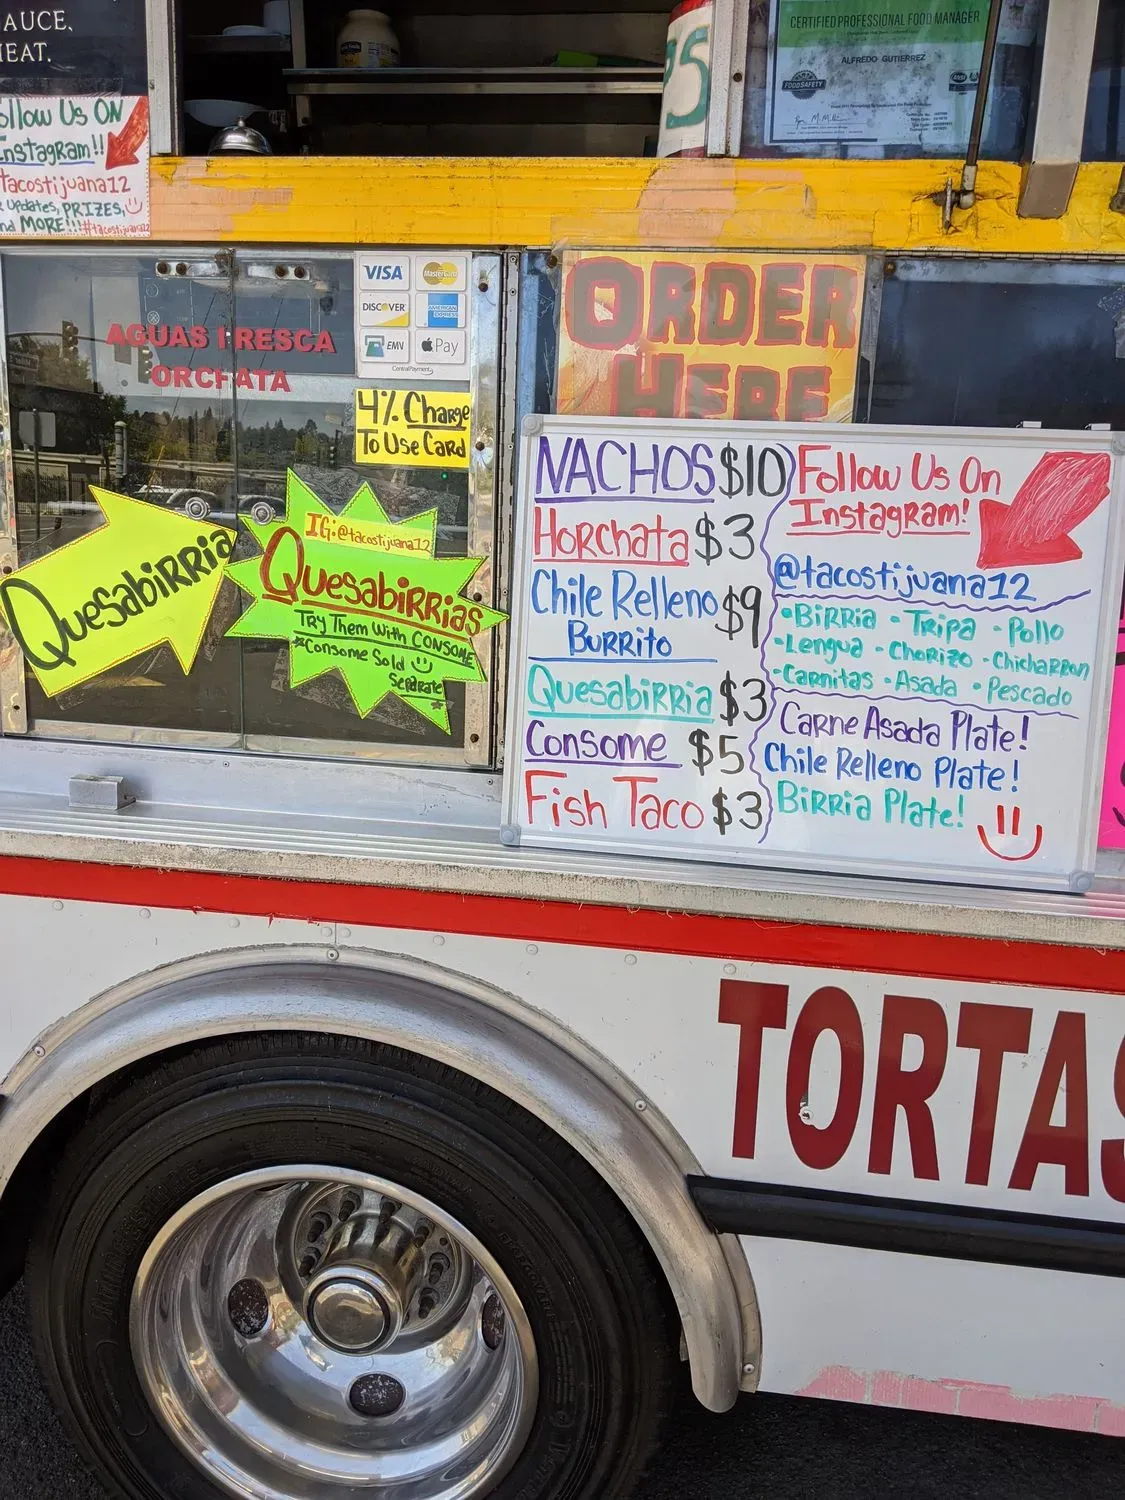 AUCE,
HEAT.
ollow Us ON
Instagram!!
tacostijuana12
Updates, PRIZES,
and MORE!!! #tacostijuana12
CERTIFIED PROFESSIONAL FOOD MANAGER
ALFREDO GUTIERREZ
FOODSAFETY
AGUAS FRESCA
ORCHATA
VISA
MasterCard
DISCOVER
AMERICAN EXPRESS
EMV
Pay
CentralPayment
4% Charge
To Use Card
ORDER
HERE
Quesabirria
IG: @tacostijuana12
Quesabirrias
Try Them With CONSOME
*Consome Sold
Seperate*
NACHOS $10
Horchata $3
Chile Relleno $9
Burrito
Quesabirria $3
Consome $5
Fish Taco $3
Follow Us On
Instagram!
@tacostijuana12
•Birria •Tripa •Pollo
•Lengua •Chorizo •Chicharron
•Carnitas •Asada •Pescado
Carne Asada Plate!
Chile Relleno Plate!
Birria Plate!
TORTAS